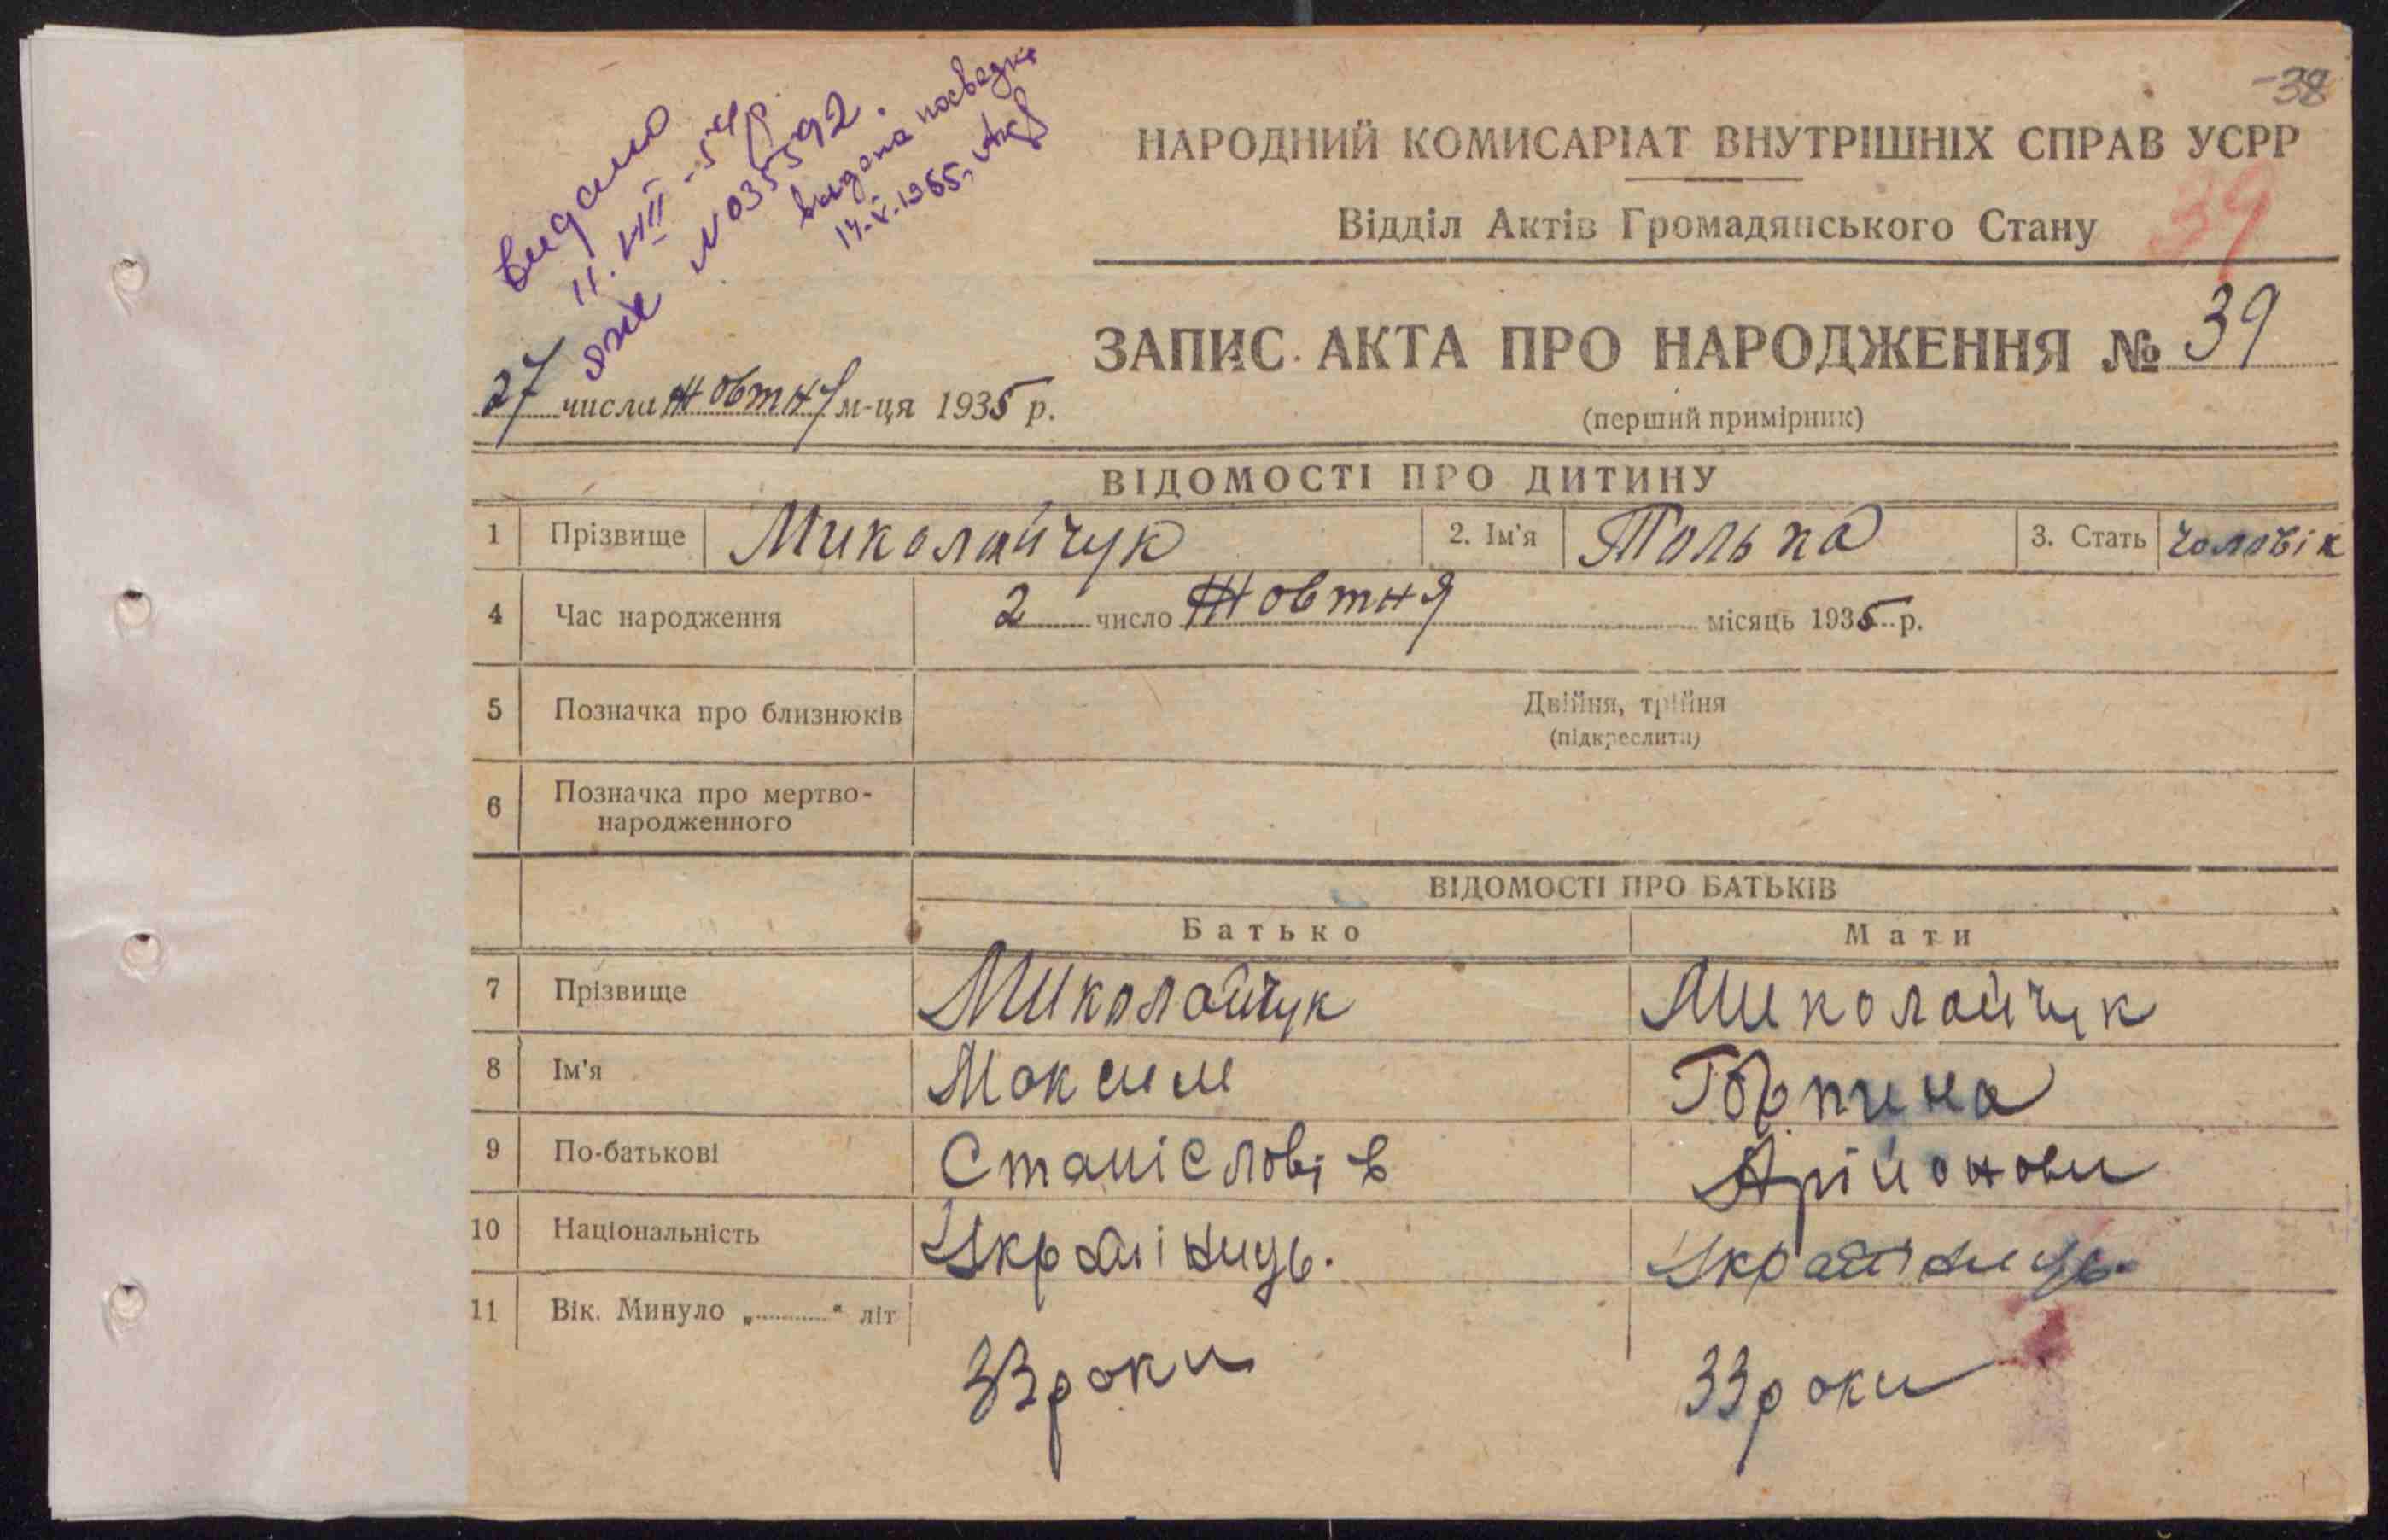 -38
видано
11.VIII-54р.
ЯЖ № 035592.
видана посвідка
14.V.1955р.
НАРОДНИЙ КОМИСАРІАТ ВНУТРІШНІХ СПРАВ УСРР
Відділ Актів Громадянського Стану
39
ЗАПИС АКТА ПРО НАРОДЖЕННЯ № 39
(перший примірник)
27 числа Жовтня м-ця 1935 р.
ВІДОМОСТІ ПРО ДИТИНУ
1 Прізвище Миколайчук 2. Ім'я Толька 3. Стать чоловік
4 Час народження 2 число Жовтня місяць 1935 р.
5 Позначка про близнюків Двійня, трійня
(підкреслити)
6 Позначка про мертво-
народженного
ВІДОМОСТІ ПРО БАТЬКІВ
Батько Мати
7 Прізвище Миколайчук Миколайчук
8 Ім'я Максим
9 По-батькові Станіславів
10 Національність Українець. Українець.
11 Вік. Минуло „ “ літ 33 роки 33 роки